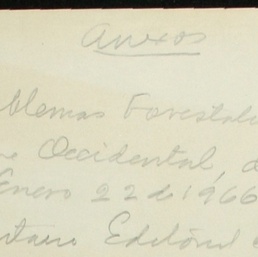 Anexos
blemas Forestale
Occidental, d
Enero 22 de 1966
Editorial